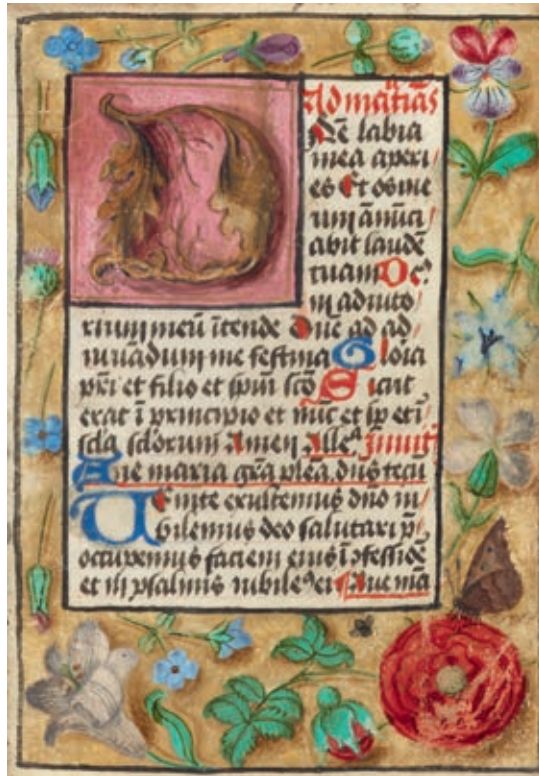 Ad mātīas
Dn̄e labia
mea aperi
es Et os me
um ānūci
abit laudē
tuam De⁹
in adiuto
rium meū ītende dn̄e ad ad
iuvādum me festina Gloīa
pr̄i et filio et sp̄iui scō Sicut
erat ī principio et nūc et sp̄ et ī
scl̄a sclōrum Amen All̓a Īnuit̄
Aue maria gr̄a plēa dn̄s tecū
Uenite exultemus dn̄o iu
bilemus deo salutari
occupemus faciem eius ī 9fessiōē
et in psalmis iubile⁹ ei Aue mā